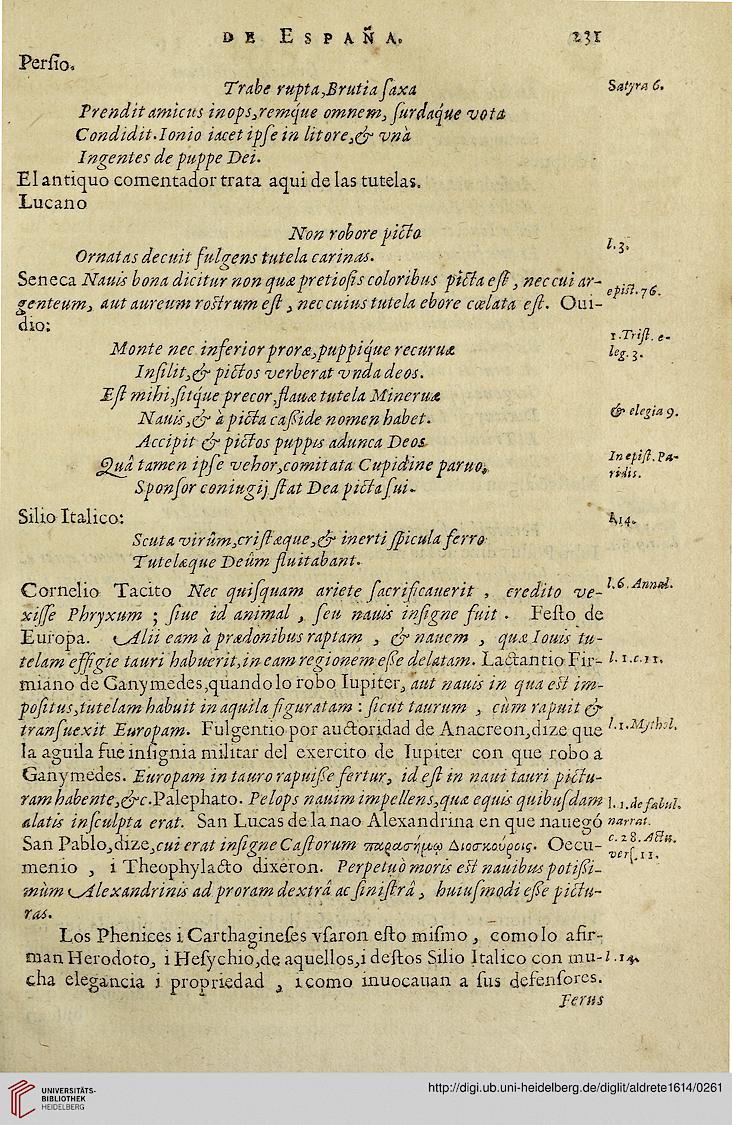 DE ESPAÑA. 231
Persio.
Trabe rupta, Brutia ſaxa Satyra 6.
Prendit amicus inops, remque omnem, ſurdaque vota
Condidit. Ionio iacet ipſe in litore, & vnà
Ingentes de puppe Dei.
El antiquo comentador trata aqui de las tutelas.
Lucano
Non robore picto
Ornatas decuit fulgens tutela carinas. l. 3.
Seneca Nauis bona dicitur non quæ pretioſis coloribus picta eſt, nec cui ar-
genteum, aut aureum roſtrum eſt, nec cuius tutela ebore cœlata eſt. Oui- epiſt. 76.
dio:
Monte nec inferior proræ, puppique recuruæ 1. Triſt. e-
Inſilit, & pictos verberat vnda deos. leg. 3.
Eſt mihi, ſitque precor, flauæ tutela Mineruæ
Nauis, & à picta caßide nomen habet. & elegia 9.
Accipit & pictos puppis adunca Deos
Quâ tamen ipſe vehor, comitata Cupidine paruo, In epiſt. Pa-
Sponſor coniugij ſtat Dea picta ſui. ridis.
Silio Italico: l. 14.
Scuta virûm, criſtæque, & inerti ſpicula ferro
Tutelæque Deûm fluitabant.
Cornelio Tacito Nec quiſquam ariete ſacrificauerit, credito ve- l. 6. Annal.
xiſſe Phryxum; ſiue id animal, ſeu nauis inſigne fuit. Feſto de
Europa. Alii eam à prædonibus raptam, & nauem, quæ Iouis tu-
telam effigie tauri habuerit, in eam regionem eße delatam. Lactantio Fir- l. 1. c. 11.
miano de Ganymedes, quando lo robo Iupiter, aut nauis in qua eſt im-
poſitus, tutelam habuit in aquila figuratam: ſicut taurum, cùm rapuit &
tranſuexit Europam. Fulgentio por auctoridad de Anacreon, dize que l. 1. Mythol.
la aguila fue inſignia militar del exercito de Iupiter con que robo a
Ganymedes. Europam in tauro rapuiße fertur, id eſt in naui tauri pictu-
ram habente, &c. Palephato. Pelops nauim impellens, qua equis quibuſdam l. 1. de fabul.
alatis inſculpta erat. San Lucas de la nao Alexandrina en que nauegó narrat.
San Pablo, dize, cui erat inſigne Caſtorum παρασήμῳ Διοσκούροις. Oecu- c. 28. Actu.
menio, i Theophylacto dixeron. Perpetuò moris eſt nauibus potißi- verſ. 11.
mùm Alexandrinis ad proram dextrâ ac ſiniſtrâ, huiuſmodi eße pictu-
ras.
Los Phenices i Carthagineſes vſaron eſto miſmo, como lo afir-
man Herodoto, i Heſychio, de aquellos, i deſtos Silio Italico con mu- l. 14.
cha elegancia i propriedad, i como inuocauan a ſus defenſores.
Ferus
UNIVERSITÄTS-
BIBLIOTHEK
HEIDELBERG
http://digi.ub.uni-heidelberg.de/diglit/aldrete1614/0261